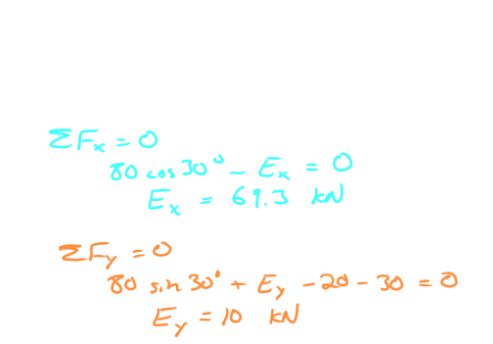 ΣFx = 0
80 cos 30° - Ex = 0
Ex = 69.3 kN
ΣFy = 0
80 sin 30° + Ey - 20 - 30 = 0
Ey = 10 kN